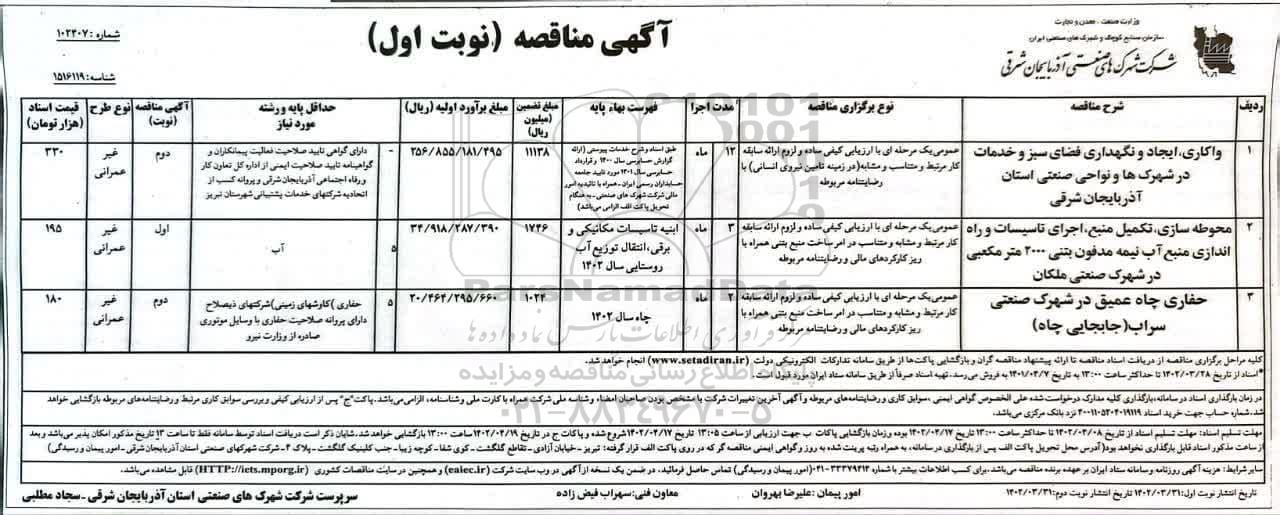 وزارت صنعت، معدن و تجارت
سازمان صنایع کوچک و شهرک های صنعتی ایران
شرکت شهرک های صنعتی آذربایجان شرقی
آگهی مناقصه (نوبت اول)
شماره : ۱۰۲۳۰۷
شناسه: ۱۵۱۶۱۱۹
ردیف شرح مناقصه نوع برگزاری مناقصه مدت اجرا فهرست بهاء پایه مبلغ تضمین (میلیون ریال) مبلغ برآورد اولیه (ریال) حداقل پایه و رشته مورد نیاز آگهی مناقصه (نوبت) نوع طرح قیمت اسناد (هزار تومان)
۱ واکاری، ایجاد و نگهداری فضای سبز و خدمات در شهرک ها و نواحی صنعتی استان آذربایجان شرقی
عمومی یک مرحله ای با ارزیابی کیفی ساده و لزوم ارائه سابقه کار مرتبط و متناسب و مشابه(در زمینه تامین نیروی انسانی) با رضایتنامه مربوطه
۱۲ ماه
طبق اسناد و شرح خدمات پیوستی (ارائه گزارش حسابرسی سال ۱۴۰۰ و قرارداد حسابرسی سال ۱۴۰۱ مورد تایید جامعه حسابداران رسمی ایران - همراه با تائیدیه امور مالی شرکت شهرک های صنعتی - به هنگام تحویل پاکت الف الزامی می‌باشد)
۱۱۱۳۸ ۲۵۶/۸۵۵/۱۸۱/۴۹۵ -
دارای گواهی تایید صلاحیت فعالیت پیمانکاران و گواهینامه تایید صلاحیت ایمنی از اداره کل تعاون کار و رفاه اجتماعی آذربایجان شرقی و پروانه کسب از اتحادیه شرکتهای خدمات پشتیبانی شهرستان تبریز
دوم غیر عمرانی ۳۳۰
۲ محوطه سازی، تکمیل منبع، اجرای تاسیسات و راه اندازی منبع آب نیمه مدفون بتنی ۲۰۰۰ متر مکعبی در شهرک صنعتی ملکان
عمومی یک مرحله ای با ارزیابی کیفی ساده و لزوم ارائه سابقه کار مرتبط و مشابه و متناسب در امر ساخت منبع بتنی همراه با ریز کارکردهای مالی و رضایتنامه مربوطه
۳ ماه
ابنیه تاسیسات مکانیکی و برقی، انتقال توزیع آب روستایی سال ۱۴۰۲
۱۷۴۶ ۳۴/۹۱۸/۲۸۷/۳۹۰ ۵ آب اول غیر عمرانی ۱۹۵
۳ حفاری چاه عمیق در شهرک صنعتی سراب(جابجایی چاه)
عمومی یک مرحله ای با ارزیابی کیفی ساده و لزوم ارائه سابقه کار مرتبط و مشابه و متناسب در امر ساخت منبع بتنی همراه با ریز کارکردهای مالی و رضایتنامه مربوطه
۲ ماه چاه سال ۱۴۰۲ ۱۰۲۴ ۲۰/۴۶۴/۲۹۵/۶۶۰ ۵
حفاری )کاوشهای زمینی)شرکتهای ذیصلاح دارای پروانه صلاحیت حفاری با وسایل موتوری صادره از وزارت نیرو
دوم غیر عمرانی ۱۸۰
کلیه مراحل برگزاری مناقصه از دریافت اسناد مناقصه تا ارائه پیشنهاد مناقصه گران و بازگشایی پاکت‌ها از طریق سامانه تدارکات الکترونیکی دولت (www.setadiran.ir) انجام خواهد شد.
*اسناد از تاریخ ۱۴۰۲/۰۳/۲۸ تا حداکثر ساعت ۱۳:۰۰ به تاریخ ۱۴۰۱/۰۴/۷ به فروش می‌رسد. تهیه اسناد صرفاً از طریق سامانه ستاد ایران مورد قبول است.
در زمان بازگذاری اسناد در سامانه، بارگذاری کلیه مدارک درخواست شده علی الخصوص گواهی ایمنی ، سوابق کاری و رضایتنامه‌های مربوطه و آگهی آخرین تغییرات شرکت با مشخص بودن صاحبان امضاء و شناسه ملی شرکت همراه با کارت ملی و شناسنامه، الزامی می‌باشد. پاکت"ج" پس از ارزیابی کیفی و بررسی سوابق کاری مرتبط و رضایتنامه‌های مربوطه بازگشایی خواهد
شد. شماره حساب جهت خرید اسناد ۴۰۰۱۱۰۵۲۰۴۰۱۹۱۱۹ نزد بانک مرکزی می‌باشد.
مهلت تسلیم اسناد: مهلت تسلیم اسناد از تاریخ ۱۴۰۲/۰۴/۰۸ تا حداکثر ساعت ۱۳:۰۰ تاریخ ۱۴۰۲/۰۴/۱۷ بوده و زمان بازگشایی پاکات ب جهت ارزیابی از ساعت ۱۳:۰۵ تاریخ ۱۴۰۲/۰۴/۱۷ شروع شده و پاکات ج در تاریخ ۱۴۰۲/۰۴/۱۹ ساعت ۱۳:۰۰ بازگشایی خواهد شد. شایان ذکر است دریافت اسناد توسط سامانه فقط تا ساعت ۱۳ تاریخ مذکور امکان پذیر می‌باشد و بعد
از ساعت مذکور اسناد قابل بازگذاری نخواهد بود( آدرس محل تحویل پاکت الف پس از بارگذاری در سامانه، به همراه رتبه پرینت شده به روز و گواهی ایمنی مناقصه گر که در روی پاکت الف قرار گرفته: تبریز - خیابان آزادی - تقاطع گلگشت - کوی شفا - کوچه زیبا - جنب کلینیک گلگشت - پلاک ۴ - شرکت شهرکهای صنعتی استان آذربایجان شرقی - امور پیمان و رسیدگی)
سایر شرایط: هزینه آگهی روزنامه و سامانه ستاد ایران بر عهده برنده مناقصه می‌باشد. برای کسب اطلاعات بیشتر با شماره ۳۳۳۷۹۲۱۳-۰۴۱ (امور پیمان و رسیدگی) تماس حاصل فرمائید. در ضمن یک نسخه از آگهی در وب سایت شرکت (eaiec.ir) و همچنین در سایت مناقصات کشوری (HTTP://iets.mporg.ir) قابل مشاهده می‌باشد.
تاریخ انتشار نوبت اول: ۱۴۰۲/۰۳/۳۱ تاریخ انتشار نوبت دوم: ۱۴۰۲/۰۳/۳۱
امور پیمان : علیرضا پهروان
معاون فنی: سهراب فیض زاده
سرپرست شرکت شهرک های صنعتی استان آذربایجان شرقی - سجاد مطلبی
ParsNamadData
پایگاه اطلاع رسانی مناقصه و مزایده
۰۲۱-۸۸۳۴۹۶۷۰-۵